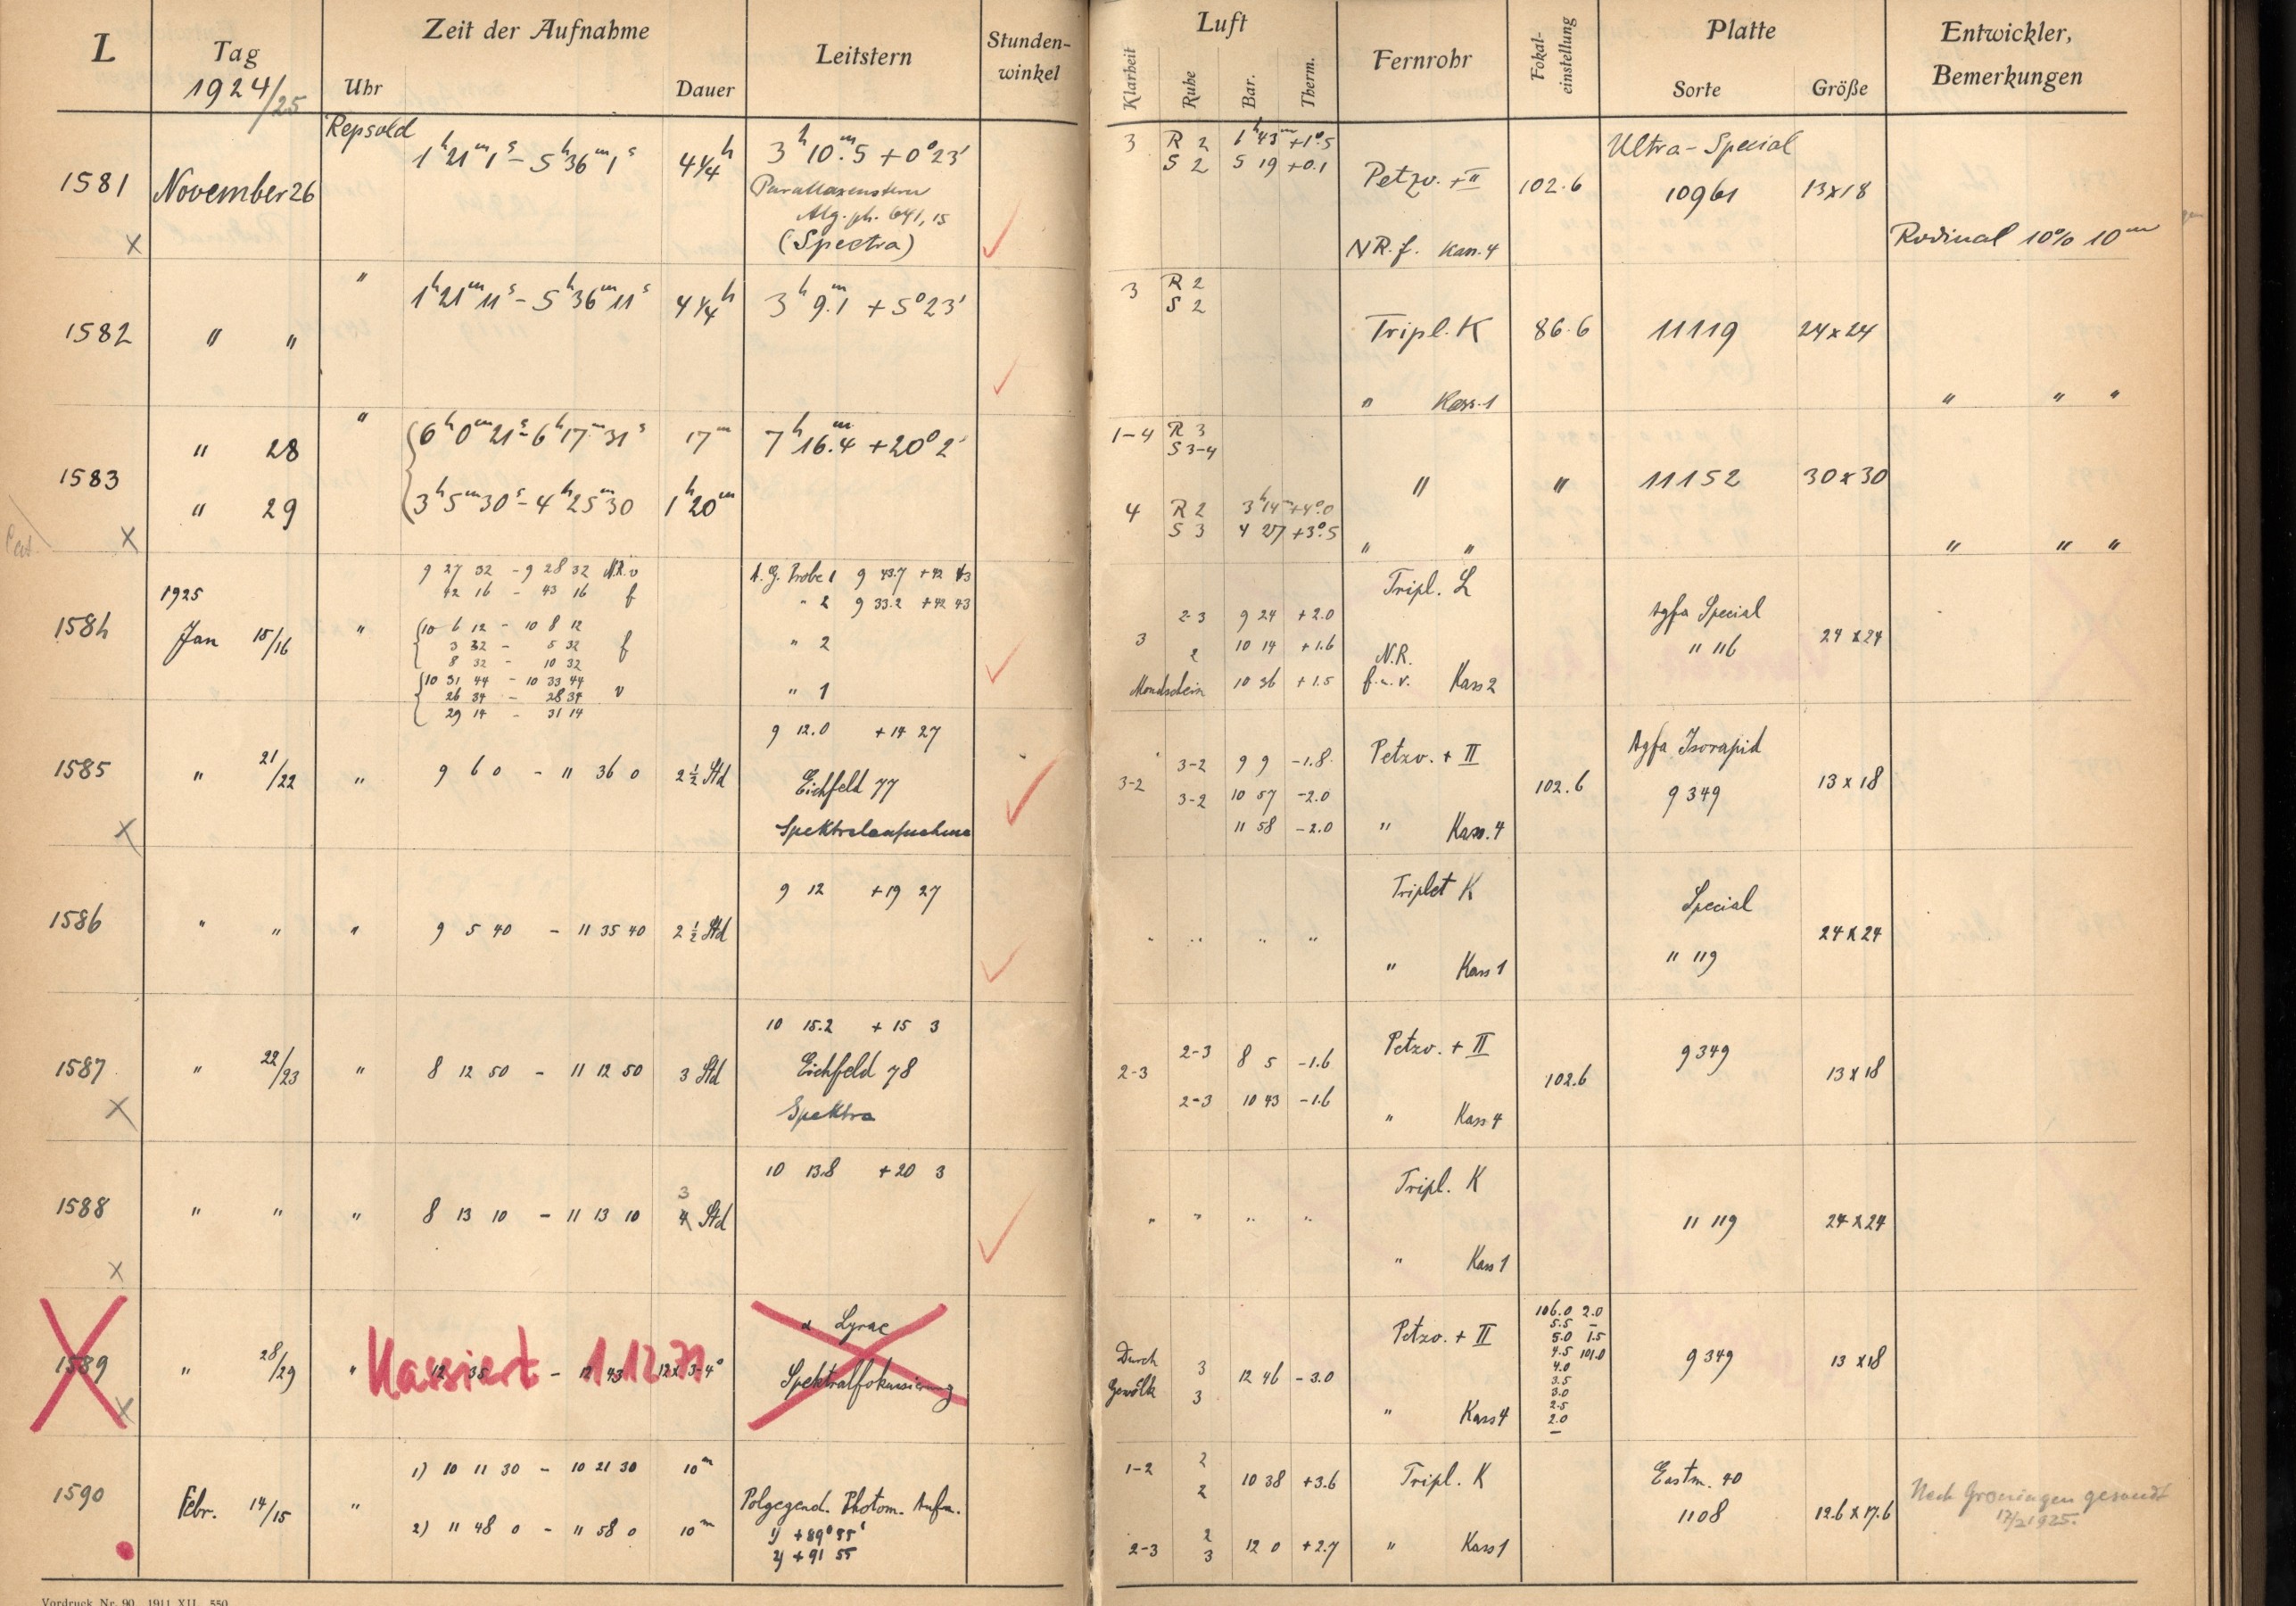 L Tag 1924/25 Zeit der Aufnahme Uhr Dauer Leitstern Stunden-winkel Luft Klarheit Ruhe Bar. Therm. Fernrohr Fokal-einstellung Platte Sorte Größe Entwickler, Bemerkungen
Repsold 1h 21m 1s - 5h 36m 1s 4 1/4h 3h 10.m5 + 0° 23' 3 R 2 1h 43m +1°.5 Ultra-Special
S 2 5 19 +0.1
1581 November 26 Parallaxenstern Petzv. + II 102.6 10961 13x18
641, 15
x (Spectra) NR. f. Kass. 4 Rodinal 10% 10m
" 1h 21m 11s - 5h 36m 11s 4 1/4h 3h 9.m1 + 5° 23' 3 R 2
S 2
1582 " " Tripl. K 86.6 11119 24x24
" Kass. 1 " " "
" 28 " 6h 0m 21s - 6h 17m 31s 17m 7h 16.m4 + 20° 2' 1-4 R 3
S 3-4
1583 " " 11152 30x30
" 29 3h 5m 30s - 4h 25m 30 1h 20m 4 R 2 3h 14m +4°.0
S 3 4 27 +3°.5
x " " " " "
9 27 32 - 9 28 32 N.R. v A. G. Zone 1 9 43.7 +42 43 Tripl. L
1925 42 16 - 43 16 f " 2 9 33.2 +42 43
2-3 9 24 +2.0 Agfa Special
1584 Jan 15/16 " 10 6 12 - 10 8 12 24x24
3 32 - 5 32 f " 2 3 2 10 14 +1.6 N.R. 11 116
8 32 - 10 32
10 31 44 - 10 33 44
26 34 - 28 34 v " 1 Mondschein 10 36 +1.5 f. u. v. Kass 2
29 14 - 31 14
9 12.0 + 14 27 Agfa Isorapid
1585 " 21/22 " 9 6 0 - 11 36 0 2 1/2 Std Eichfeld 77 3-2 3-2 9 9 -1.8 Petzv. + II 102.6 9349 13x18
3-2 10 57 -2.0
x Spektralaufnahme 11 58 -2.0 " Kass. 4
9 12 + 19 27 Triplet K Special
1586 " " " 9 5 40 - 11 35 40 2 1/2 Std " " " " 24x24
" Kass 1 11 119
10 15.2 + 15 3 Petzv. + II
1587 " 22/23 " 8 12 50 - 11 12 50 3 Std Eichfeld 78 2-3 2-3 8 5 -1.6 102.6 9349 13x18
x Spektra 2-3 10 43 -1.6 " Kass 4
10 13.8 + 20 3 Tripl. K
3
1588 " " " 8 13 10 - 11 13 10 4 Std " " " " 11 119 24x24
x " Kass 1
α Lyrae Petzv. + II 106.0 2.0
5.5 -
5.0 1.5
4.5 101.0
1589 " 28/29 " 12 35 - 12 43 12x 3-4s Spektralfokussierung Durch Gewölk 3 3 12 46 -3.0 4.0 9349 13x18
Kassiert
3.5
3.0
2.5
x " Kass 4 2.0
-
1) 10 11 30 - 10 21 30 10m 1-2 2 2 10 38 +3.6 Tripl. K Eastm. 40
1590 Febr. 14/15 " Polgegend. Photom. Aufn. 1108 12.6x17.6 Nach Groningen gesandt
2) 11 48 0 - 11 58 0 10m 1) +89° 55' 17/2 1925.
2) +91 55 2-3 2 3 12 0 +2.7 " Kass 1
Vordruck Nr. 90. 1911 XII. 550